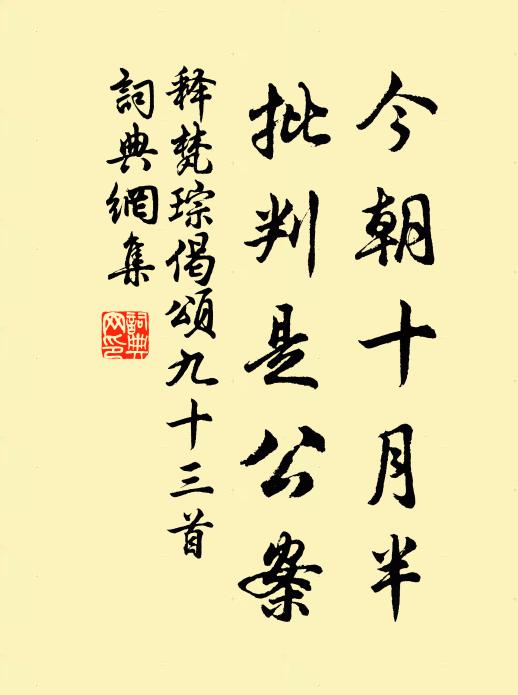 今朝十月半
批判是公案
释梵琮偈頌九十三首
詞典網集
詞典網印